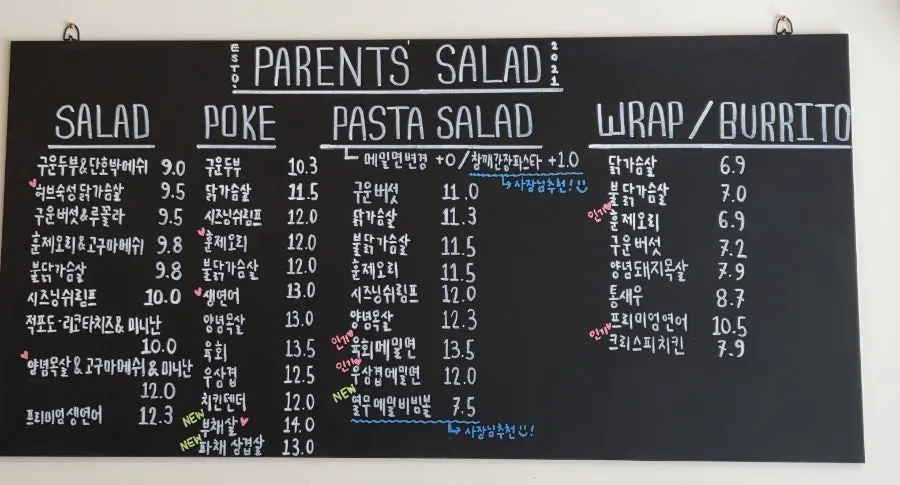 ESTD. PARENTS' SALAD 2021
SALAD
구운두부&단호박메쉬 9.0
허브숙성 닭가슴살 9.5
구운버섯&루꼴라 9.5
훈제오리&고구마메쉬 9.8
불닭가슴살 9.8
시즈닝쉬림프 10.0
적포도·리코타치즈& 미니난
10.0
양념목살&고구마메쉬&미니난
12.0
프리미엄생연어 12.3
POKE
구운두부 10.3
닭가슴살 11.5
시즈닝쉬림프 12.0
훈제오리 12.0
불닭가슴살 12.0
생연어 13.0
양념목살 13.0
육회 13.5
우삼겹 12.5
치킨텐더 12.0
NEW 부채살 14.0
NEW 파채 삼겹살 13.0
PASTA SALAD
메밀면변경 +0/참깨간장파스타 +1.0
사장님추천!
구운버섯 11.0
닭가슴살 11.3
불닭가슴살 11.5
훈제오리 11.5
시즈닝쉬림프 12.0
양념목살 12.3
인기 육회메밀면 13.5
인기 우삼겹메밀면 12.0
NEW 열무메밀비빔볼 7.5
사장님추천!
WRAP/BURRITO
닭가슴살 6.9
불닭가슴살 7.0
인기 훈제오리 6.9
구운버섯 7.2
양념돼지목살 7.9
통새우 8.7
프리미엄연어 10.5
인기 크리스피치킨 7.9